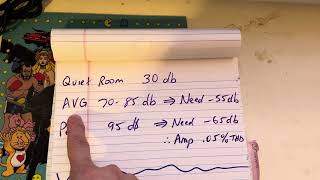 Quiet Room 30 db
AVG 70-85 db ⇒ Need -55db
95 db ⇒ Need -65db
∴ Amp .05% THD